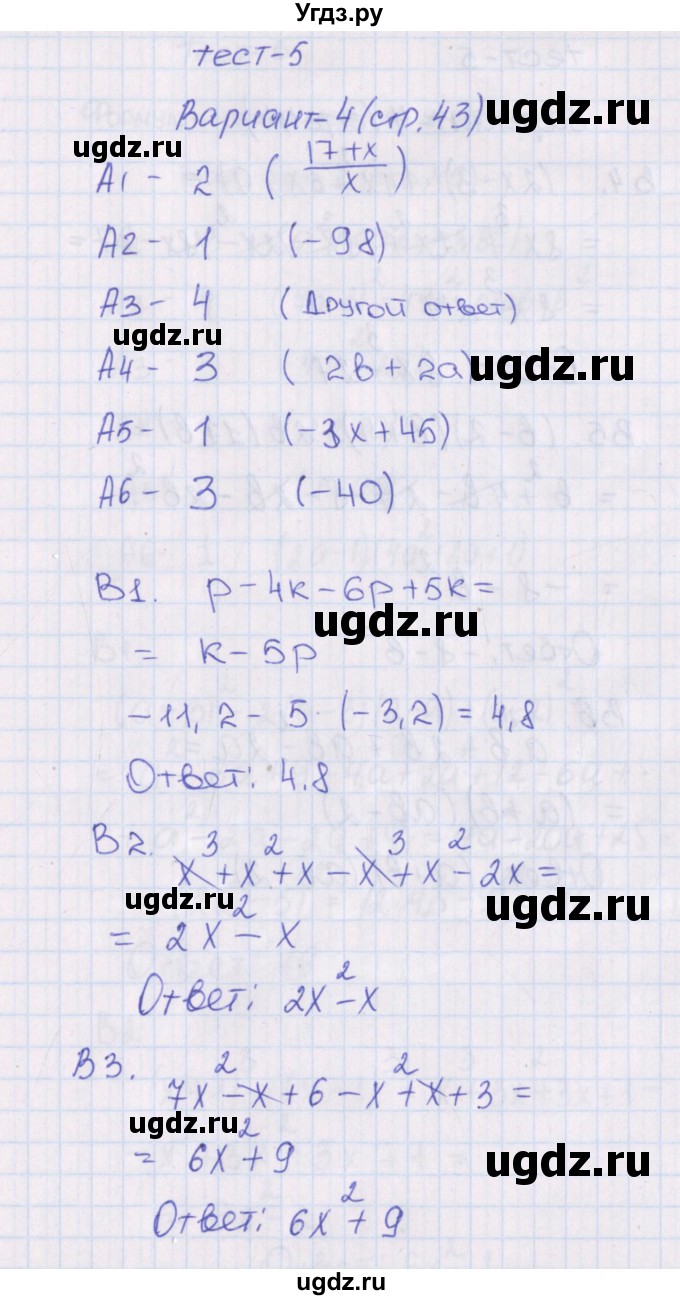 Угдз.ру
тест-5
Вариант-4 (стр.43)
ugdz.ru
ugdz.ru
A1 - 2 ( 17+x / x )
A2 - 1 (-98)
A3 - 4 (Другой ответ)
ugdz.ru
A4 - 3 ( 2в + 2а)
ugdz.ru
A5 - 1 (-3x+45)
A6 - 3 (-40)
B1. p-4k-6p+5k=
ugdz.ru
= k-5p
-11,2 - 5 · (-3,2) = 4,8
Ответ: 4.8
B2. x³+x²+x-x³+x²-2x=
ugdz.ru
ugdz.ru
= 2x²-x
Ответ: 2x²-x
B3. 7x²-x+6-x²+x+3=
ugdz.ru
= 6x²+9
ugdz.ru
Ответ: 6x²+9
ugdz.ru